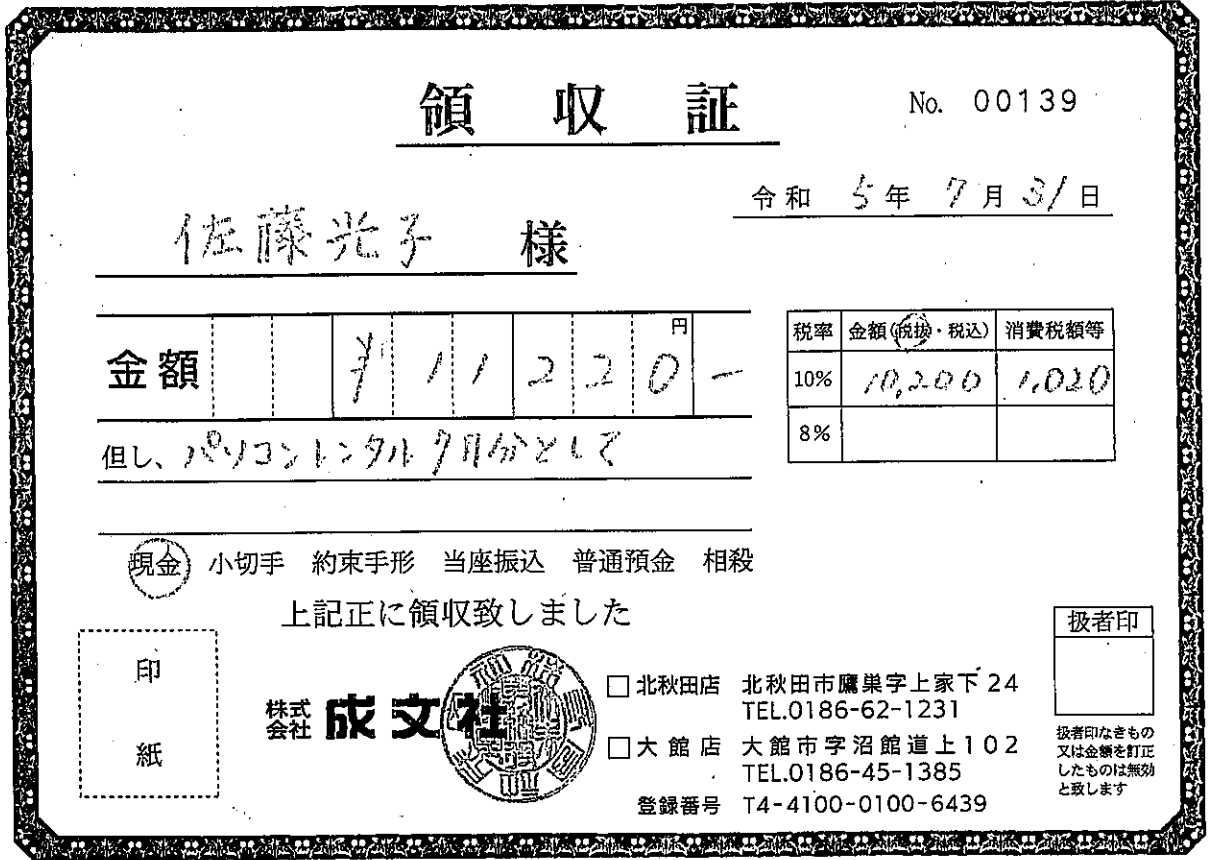 領収証
No. 00139
令和 5年 7月 31日
佐藤光子 様
金額 ¥11220円-
税率 金額(税抜・税込) 消費税額等
10% 10,200 1,020
8%
但し、パソコンレンタル7月分として
現金 小切手 約束手形 当座振込 普通預金 相殺
上記正に領収致しました
印紙
株式会社 成文社
□北秋田店 北秋田市鷹巣字上家下24
TEL.0186-62-1231
□大館店 大館市字沼館道上102
TEL.0186-45-1385
登録番号 T4-4100-0100-6439
扱者印
扱者印なきもの
又は金額を訂正
したものは無効
と致します